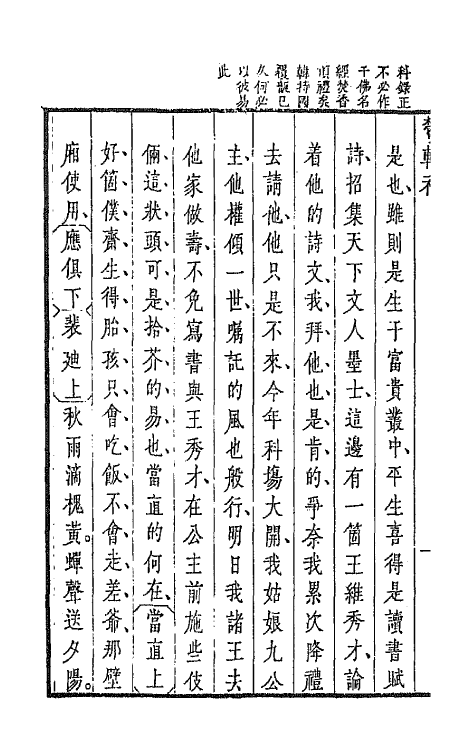 科錄正
不必作
千佛名
經焚香
頂禮矣
韓持國
禮甑已
久何必
以彼易
此
鬱輪袍
是也、雖則是生于富貴叢中、平生喜得是讀書賦
詩、招集天下文人墨士、這邊有一箇王維秀才、論
着他的詩文、我拜他也是肯的、爭奈我累次降禮
去請他、他只是不來、今年科場大開、我姑娘九公
主、他權傾一世、囑託的風也般行、明日我諸王夫
他家做壽、不免寫書與王秀才、在公主前施些伎
倆、這狀頭可是拾芥的易也、當直的何在、當直上
好箇僕、齋生得胎孩、只會吃飯、不會走差、爺那壁
廂使用、應俱下 裴廸上 秋雨滴槐黃。蟬聲送夕陽。